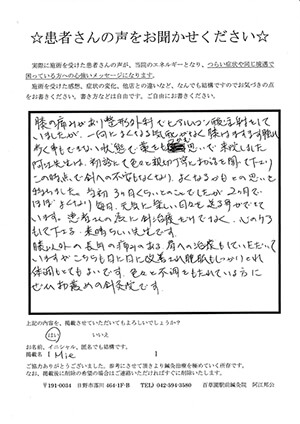 ☆患者さんの声をお聞かせください☆
実際に施術を受けた患者さんの声が、当院のエネルギーとなり、つらい症状や同じ境遇で
困っている方への心強いメッセージになります。
施術を受けた感想、症状の変化、他店との違いなど、なんでも結構ですのでお気づきの点
をお書きください。書き方などは自由です。ご自由にお書きください。
膝の痛みがあり整形外科でヒアルロン酸注射をして
いましたが、一向によくなる気配がなく膝はますます腫れ
歩く事もできない状態で藁をも思いで来院しました
阿江先生は、初診にて色々と親切丁寧にお話を聞いて下さり
この時点で針への不安もなくなり、よくなるかもとの思いを
持ちました。当初3ヶ月くらいとのことでしたが2ヵ月で
ほぼよくなり毎日、元気に楽しい日々を送る事ができて
います。患者さんの為に針治療だけでなく、心のケア
もして下さる、素晴らしい先生です。
膝以外の長年の痛みのある肩への治療もしていただいて
いますがこちらも日に日に改善され腕肌もしっかりとされ
体調もとてもよいです。色々と不調をもたれている方に
ぜひお勧めの針灸院です。
上記の内容を、掲載させていただいてもよろしいでしょうか?
はい いいえ
お名前、イニシャル、匿名でも結構です。
掲載名 ( Mie )
ご協力ありがとうございました。参考にさせて頂きより鍼灸治療を極めていく所存です。
なお、掲載後に削除の希望の場合はご連絡いただければすぐに削除いたします。
〒191-0034 日野市落川 464-1F-B TEL 042-594-3580 百草園駅前鍼灸院 阿江邦公